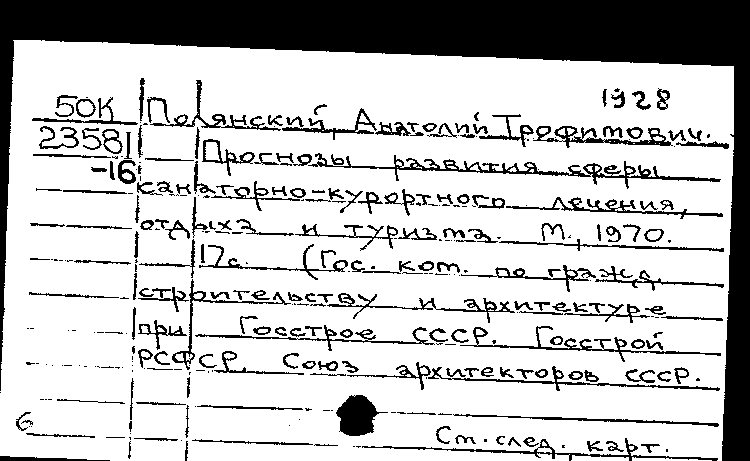 1928
50К Полянский, Анатолий Трофимович.
23581 Прогнозы развития сферы
-16 санаторно-курортного лечения,
отдыха и туризма. М., 1970.
17с. (Гос. ком. по гражд.
строительству и архитектуре
при Госстрое СССР. Госстрой
РСФСР. Союз архитекторов СССР.
6 См. след. карт.